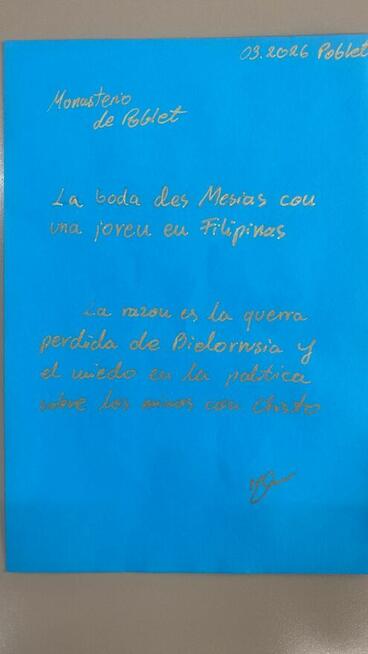 03.2026 Poblet
Monasterio
de Poblet
La boda des Mesias con
una joven en Filipinas
La razon es la guerra
perdida de Bielorrusia y
el miedo en la politica
sobre los con Christo